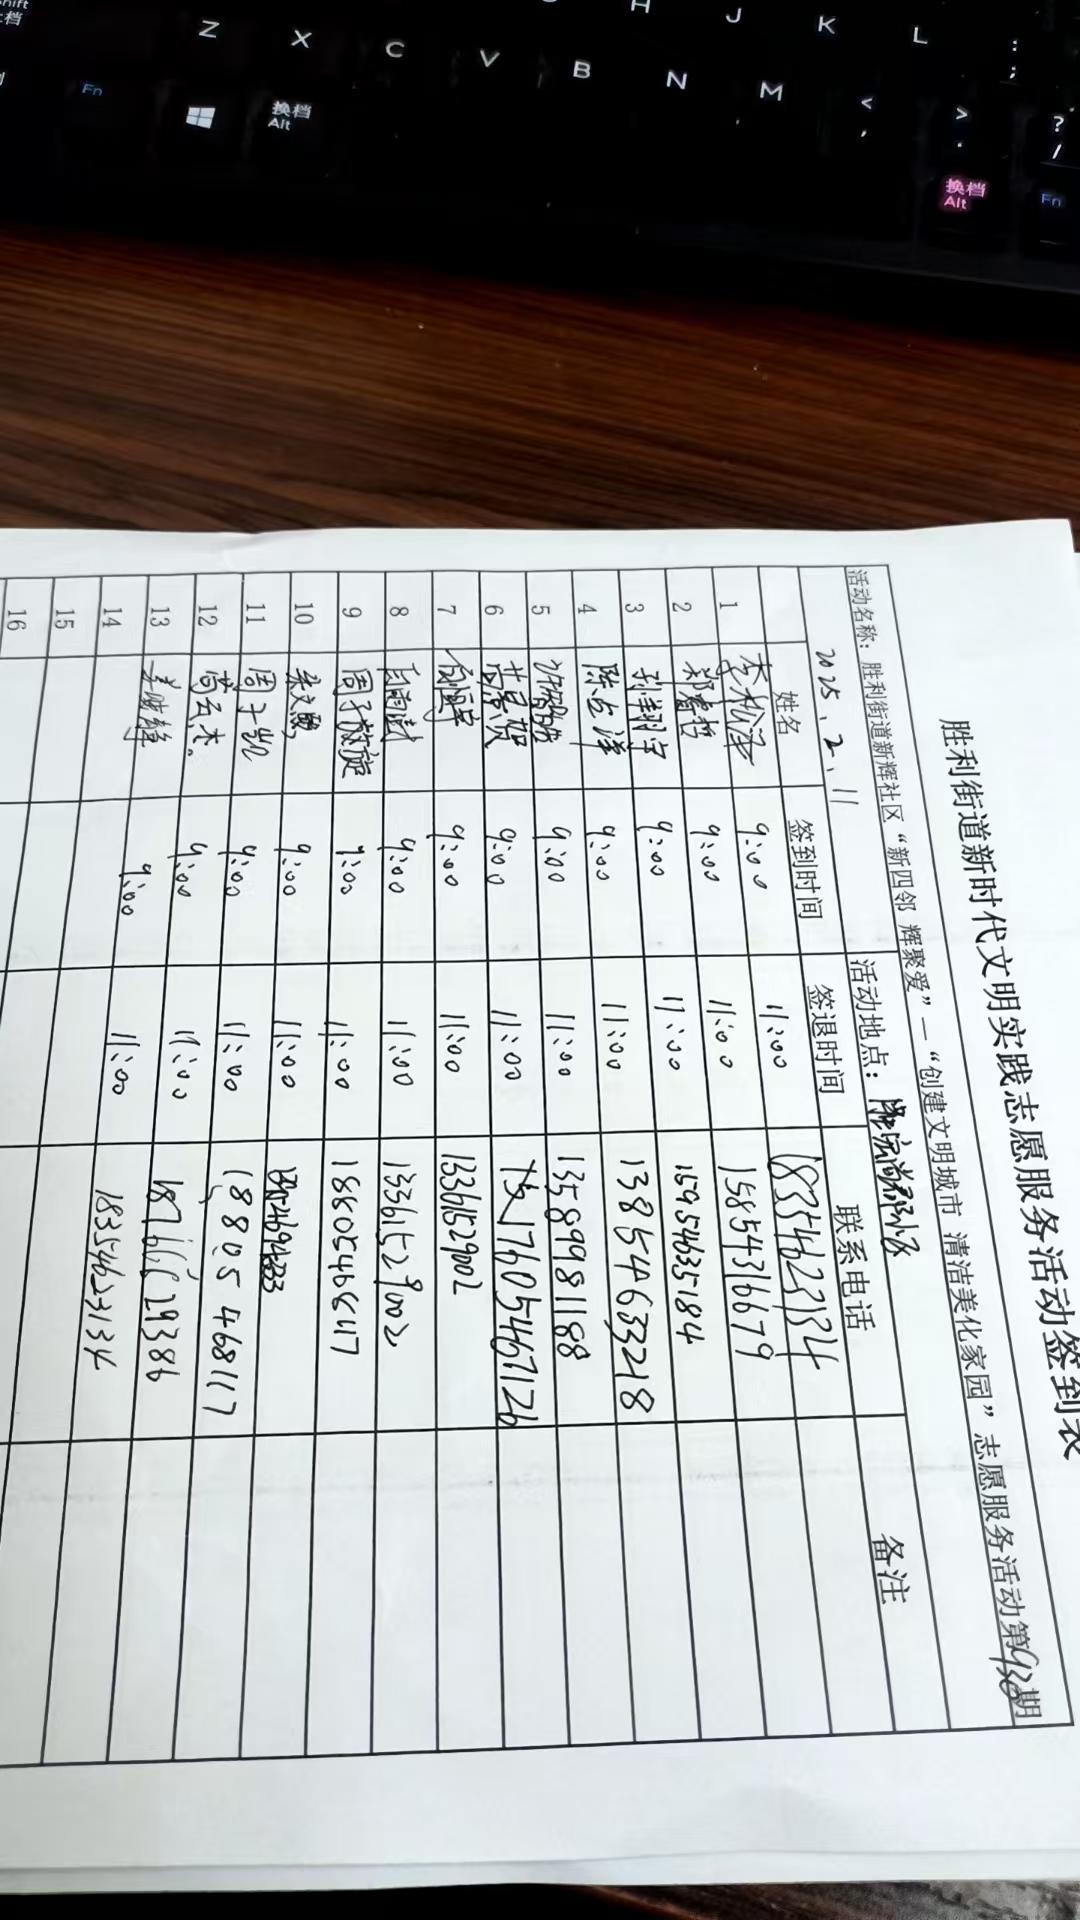 Z X C V B N M < >
H J K L : ;
, . ? /
Fn 换档 Alt 换档 Alt Fn
胜利街道新时代文明实践志愿服务活动签到表
活动名称：胜利街道新辉社区“新四邻 辉聚爱”—“创建文明城市 清洁美化家园”志愿服务活动第930期
2025.2.11 活动地点：
姓名 签到时间 签退时间 联系电话 备注
1 李松泽 9:00 11:00 18354623134
2 郑睿哲 9:00 11:00 15854316679
3 刘翔宇 9:00 11:00 15954635184
4 陈占泽 9:00 11:00 13854633218
5 9:00 11:00 13589981188
6 9:00 11:00 17605467126
7 9:00 11:00 13361529002
8 9:00 11:00 13361529002
9 周子璇 9:00 11:00 18805468117
10 朱文鹏 9:00 11:00
11 周子凯 9:00 11:00 18805468117
12 9:00 11:00 18766629386
13 9:00 11:00 18354623134
14
15
16